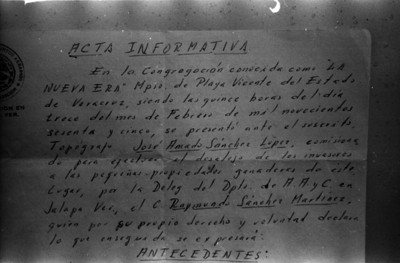 ACTA INFORMATIVA
En la Congregación conocida como "LA
NUEVA ERA" Mpio. de Playa Vicente del Estado
de Veracruz, siendo las quince horas del día
trece del mes de Febrero de mil novecientos
sesenta y cinco, se presentó ante el suscrito
Topógrafo José Amado Sánchez López, comisiona
do para ejecutar el desalojo de los invasores
a las pequeñas propiedades ganaderas de este
Lugar, por la Deleg. del Dpto. de A.A.y C. en
Jalapa Ver., el C. Raymundo Sánchez Martínez,
quien por su propio derecho y voluntad declara
lo que enseguida se expresará:
ANTECEDENTES: